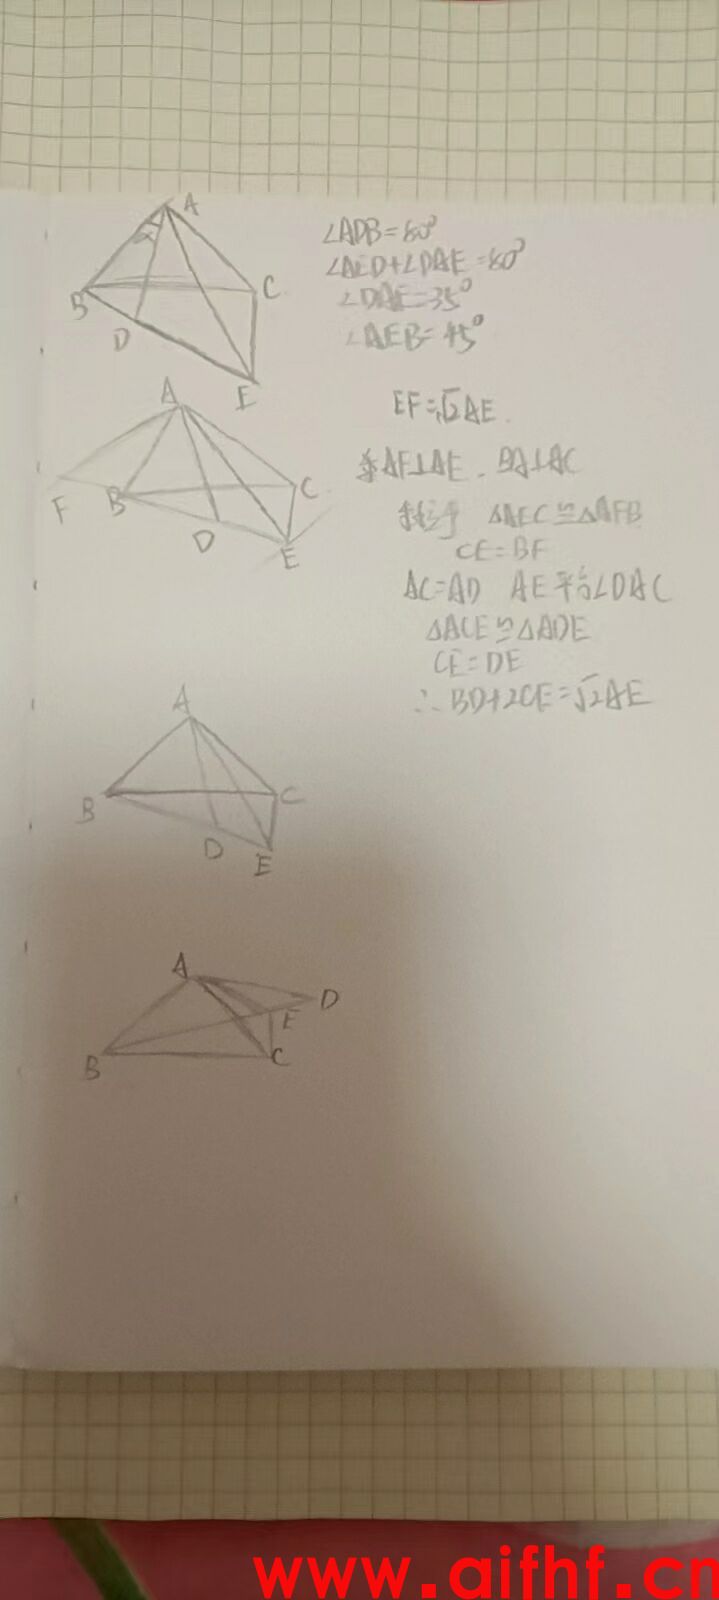 A
B
C
D
E
∠ADB=80°
∠AED+∠DAE=80°
∠DAE=35°
∠AEB=45°
A
F
B
C
D
E
EF=√2AE.
AF⊥AE、BA⊥AC
△AEC≌△AFB
CE=BF
AC=AD AE平分∠DAC
△ACE≌△ADE
CE=DE
∴BD+2CE=√2AE
A
B
C
D
E
A
D
E
B
C
www.aifhf.cn